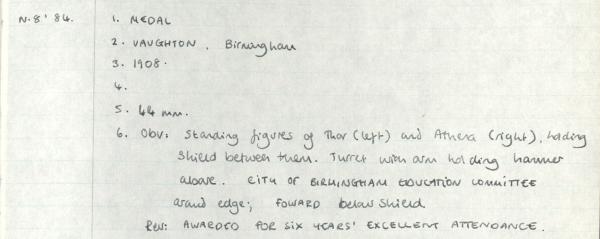 N.8'84. 1. MEDAL
2. VAUGHTON, Birmingham
3. 1908.
4.
5. 44 mm.
6. Obv: Standing figures of Thor (left) and Athena (right), holding
Shield between them. Turret with arm holding hammer
above. CITY OF BIRMINGHAM EDUCATION COMMITTEE
around edge; FOWARD below shield
Rev: AWARDED FOR SIX YEARS' EXCELLENT ATTENDANCE.